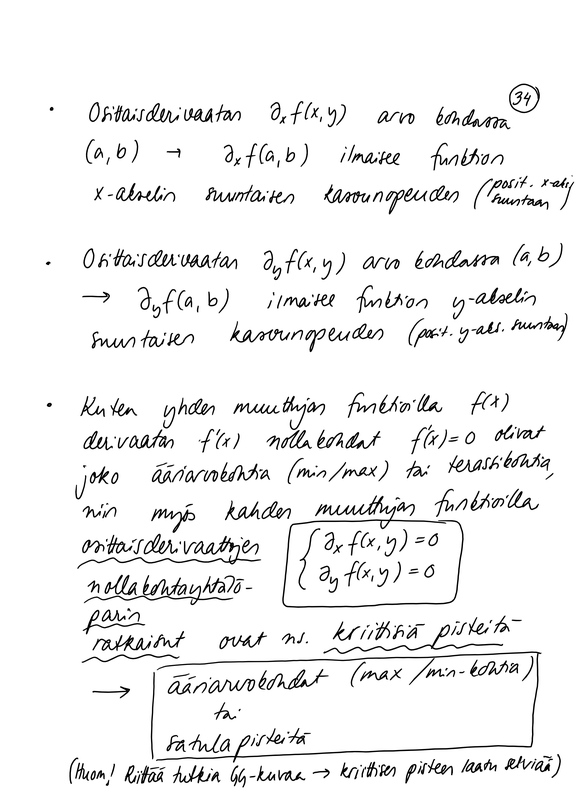 34
• Osittaisderivaatan ∂ₓf(x,y) arvo kohdassa
(a,b) → ∂ₓf(a,b) ilmaisee funktion
x-akselin suuntaisen kasvunopeuden (posit. x-aks
suuntaan)
• Osittaisderivaatan ∂ᵧf(x,y) arvo kohdassa (a,b)
→ ∂ᵧf(a,b) ilmaisee funktion y-akselin
suuntaisen kasvunopeuden (posit. y-aks. suuntaan)
• Kuten yhden muuttujan funktioilla f(x)
derivaatan f'(x) nollakohdat f'(x)=0 olivat
joko ääriarvokohtia (min/max) tai terassikohtia,
niin myös kahden muuttujan funktioilla
osittaisderivaattojen
{ ∂ₓf(x,y) = 0
∂ᵧf(x,y) = 0
nollakohtayhtälö-
parin
ratkaisut ovat ns. kriittisiä pisteitä
→ ääriarvokohdat (max/min-kohtia)
tai
satulapisteitä
(Huom! Riittää tutkia GG-kuvaa → kriittisen pisteen laatu selviää)